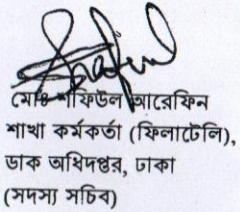 মোঃ শফিউল আরেফিন
শাখা কর্মকর্তা (ফিলাটেলি),
ডাক অধিদপ্তর, ঢাকা
(সদস্য সচিব)